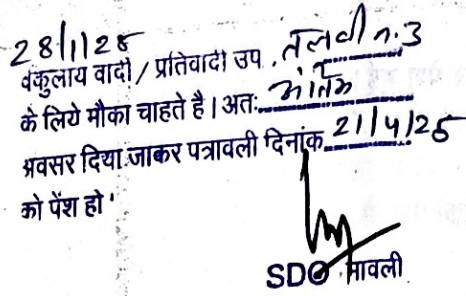 28/1/25
वकुलाय वादी/प्रतिवादी उप. तलवी न. 3
के लिये मौका चाहते है। अतः अंतिम
अवसर दिया जाकर पत्रावली दिनांक 21/4/25
को पेंश हो
SDO मावली